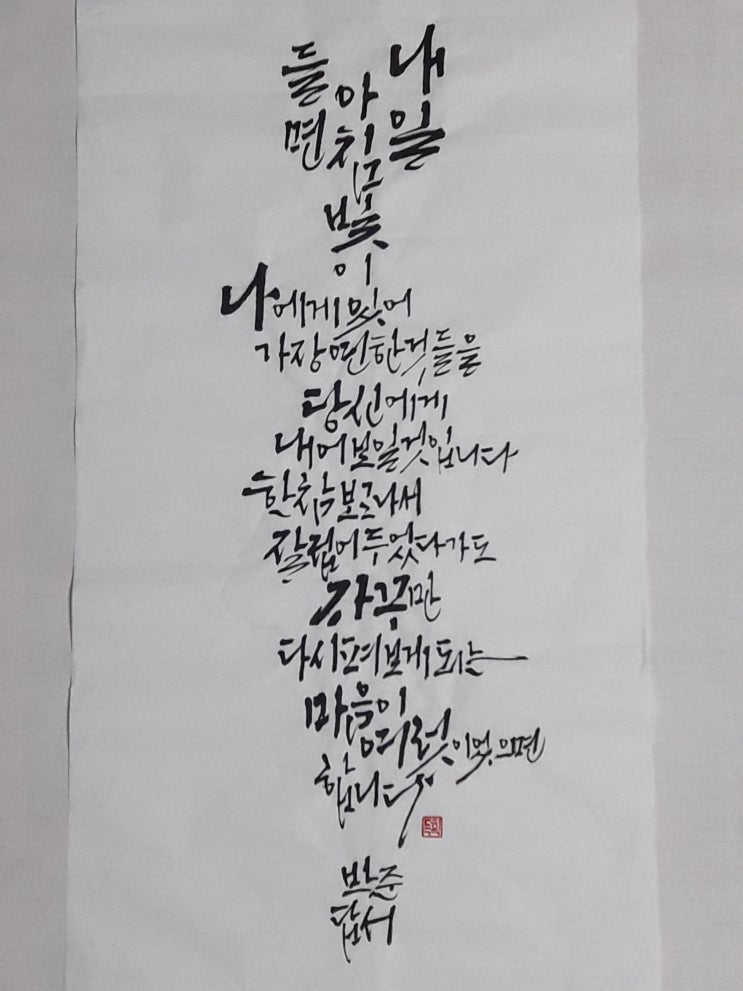 내일
아침빛이
들면
나에게있어
가장연한것들을
당신에게
내어보일것입니다
한참보고나서
잘접어두었다가도
자꾸만
다시펴보게되는
마음이여럿이었으면
합니다
박준
답서